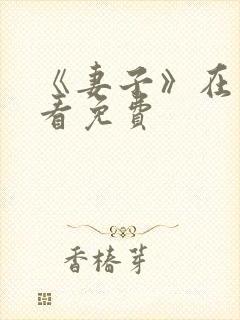 《妻子》在
看免费
香椿芽